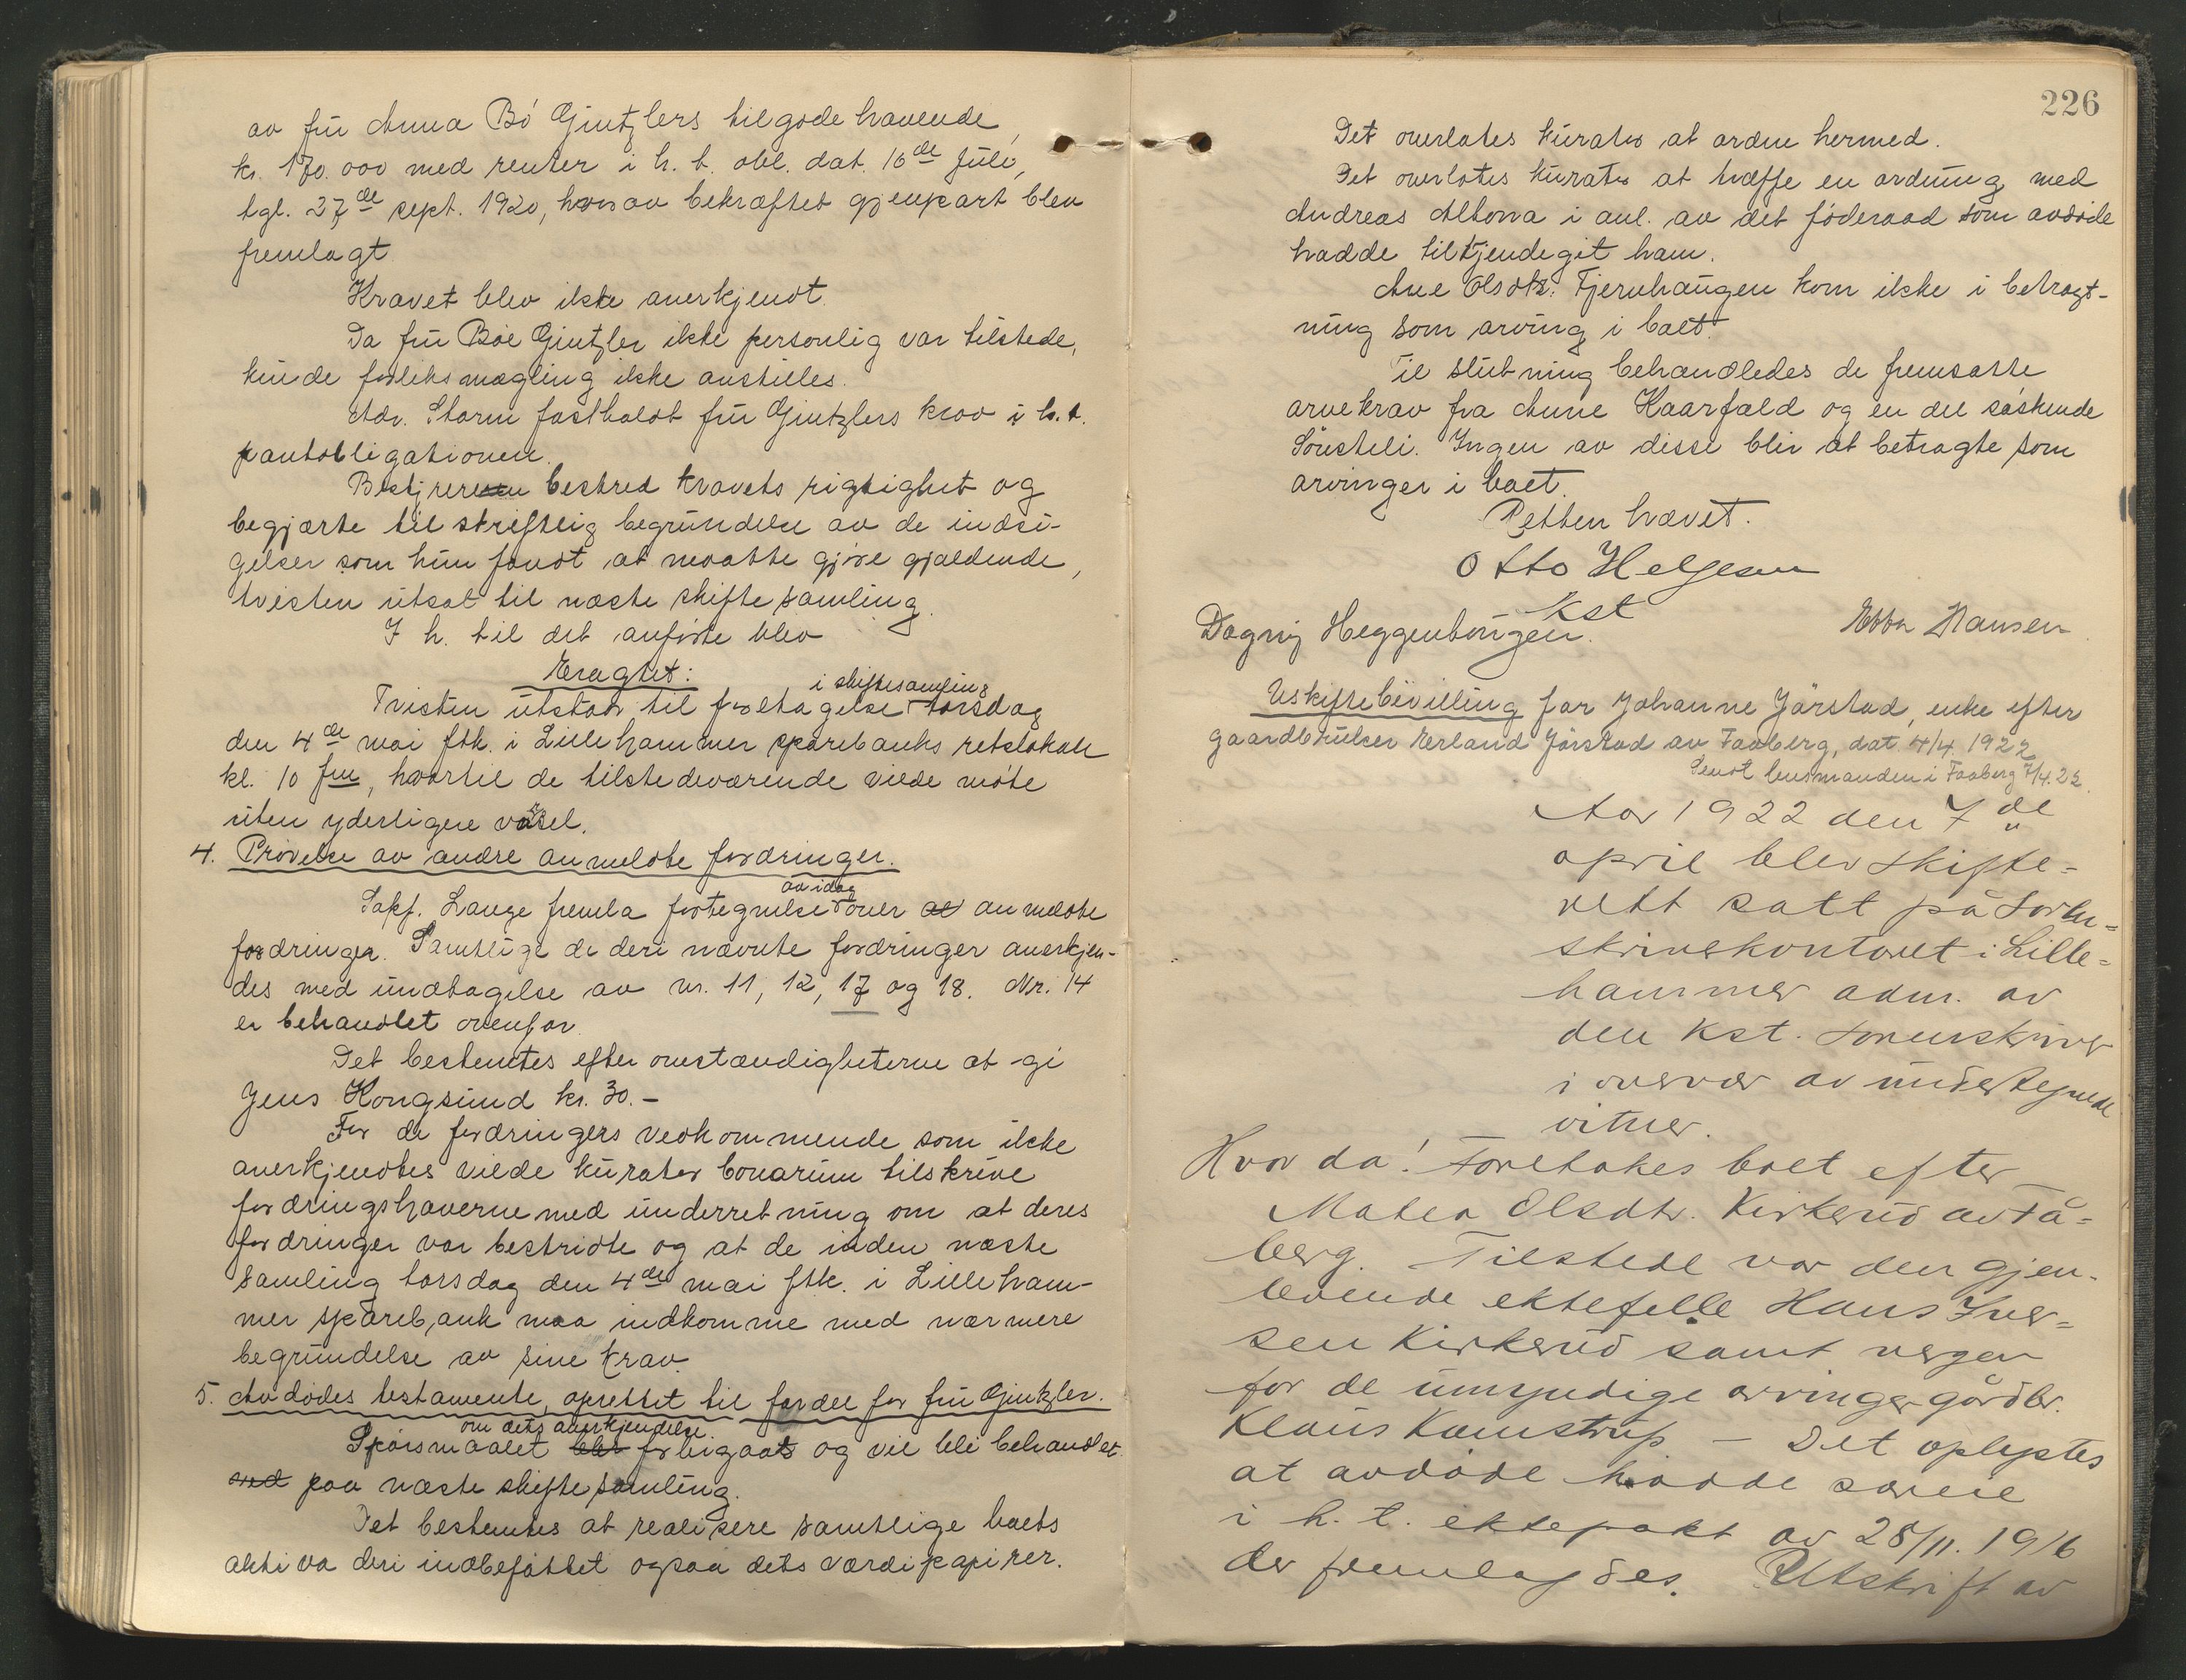 av fru Anna Bö Gjintzlers tilgodehavende,
kr. 170.000 med renter i h. t. obl. dat. 16de juli,
tgl. 27de sept. 1920, hvorav bekræftet gjenpart blev
fremlagt.
Kravet blev ikke anerkjendt.
Da fru Böe Gjintzler ikke personlig var tilstede,
kunde forliksmægling ikke anstilles.
Adv. Storm fastholdt fru Gjintzlers krav i h. t.
pantobligationen.
Bestyreren bestred kravets rigtighet og
begjærte til skriftlig begrundelse av de indsi-
gelser som hun fandt at maatte gjöre gjældende,
tvisten utsat til næste skiftesamling.
I h. til det anförte blev
Eragtet:
i skiftesamling
Tvisten utstaar til foretagelse torsdag
den 4de mai ftk. i Lillehammer sparebanks retslokale
kl. 10 fm, hvortil de tilstedeværende vilde möte
uten yderligere varsel.
4. Prövelse av andre anmeldte fordringer.
av idag
Sakf. Lange fremla fortegnelse over anmeldte
fordringer. Samtlige de deri nævnte fordringer anerkjen-
des med undtagelse av nr. 11, 12, 17 og 18. Nr. 14
er behandlet ovenfor.
Det bestemtes efter omstændigheterne at gi
Jens Kongsund kr. 30.-
For de fordringers vedkommende som ikke
anerkjendtes vilde kurator bonarum tilskrive
fordringshaverne med underretning om at deres
fordringer var bestridte og at de inden næste
samling torsdag den 4de mai ftk. i Lilleham-
mer sparebank maa indkomme med nærmere
begrundelse av sine krav.
5. Avdödes testamente, oprettet til fordel for fru Gjintzler.
om dets anerkjendelse
Spörsmaalet blev forbigaat og vil bli behandlet
ved paa næste skiftesamling.
Det bestemtes at realisere samtlige boets
aktiva deri indbefattet ogsaa dets værdipapirer.
226
Det overlates kurator at ordne hermed.
Det overlates kurator at træffe en ordning med
Andreas Altona i anl. av det föderaad som avdöde
hadde tilkjendegit ham.
Ane Olsdtr. Tjernhaugen kom ikke i betragt-
ning som arving i boet.
Til slutning behandledes de fremsatte
arvekrav fra Anne Kaarfald og en del söskende
Sönsteli. Ingen av disse blir at betragte som
arvinger i boet.
Retten hævet.
Otto Helgesen
kst
Dagny Heggenhougen. Ebba Hansen
Uskiftebevilling for Johanne Jörstad, enke efter
gaardbruker Erland Jörstad av Faaberg, dat. 4/4. 1922
Sendt lensmanden i Faaberg 7/4.22.
Aar 1922 den 7de
april blev skifte-
rett satt på Soren-
skriverkontoret i Lille-
hammer adm. av
den kst. sorenskriver
i overvær av undertegnede
vitner.
Hvor da! Foretokes boet efter
Matea Olsdtr. Kirkerud av Få-
berg. Tilstede var den gjen-
levende ektefelle Hans Iver-
sen Kirkerud samt vergen
for de umyndige arvinger gårdbr.
Klaus Kamstrup. — Det oplystes
at avdöde hadde særeie
i h. t. ektepakt av 28/11. 1916
der fremlagdes. Utskrift av